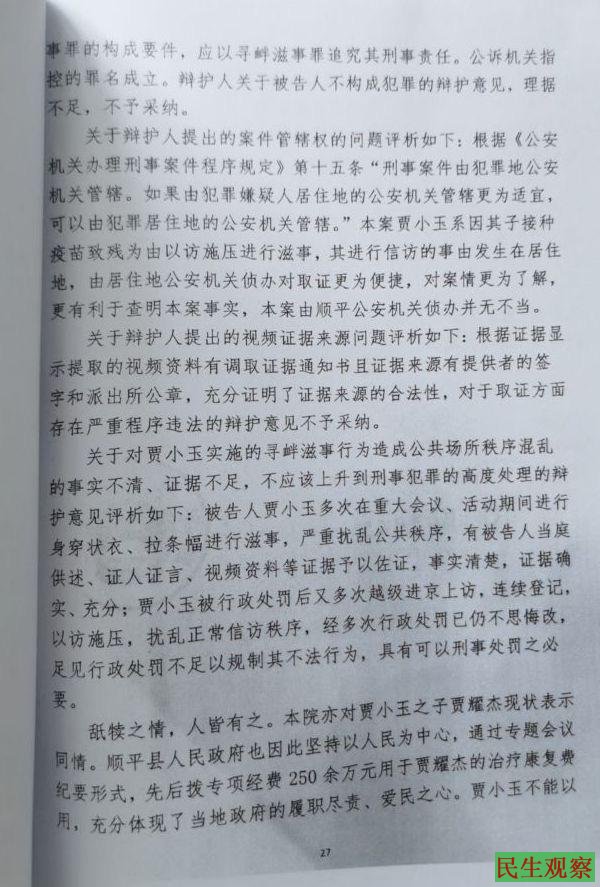 事罪的构成要件，应以寻衅滋事罪追究其刑事责任。公诉机关指
控的罪名成立。辩护人关于被告人不构成犯罪的辩护意见，理据
不足，不予采纳。
关于辩护人提出的案件管辖权的问题评析如下：根据《公安
机关办理刑事案件程序规定》第十五条“刑事案件由犯罪地公安
机关管辖。如果由犯罪嫌疑人居住地的公安机关管辖更为适宜，
可以由犯罪居住地的公安机关管辖。”本案贾小玉系因其子接种
疫苗致残为由以访施压进行滋事，其进行信访的事由发生在居住
地，由居住地公安机关侦办对取证更为便捷，对案情更为了解，
更有利于查明本案事实，本案由顺平公安机关侦办并无不当。
关于辩护人提出的视频证据来源问题评析如下：根据证据显
示提取的视频资料有调取证据通知书且证据来源有提供者的签
字和派出所公章，充分证明了证据来源的合法性，对于取证方面
存在严重程序违法的辩护意见不予采纳。
关于对贾小玉实施的寻衅滋事行为造成公共场所秩序混乱
的事实不清、证据不足，不应该上升到刑事犯罪的高度处理的辩
护意见评析如下：被告人贾小玉多次在重大会议、活动期间进行
身穿状衣、拉条幅进行滋事，严重扰乱公共秩序，有被告人当庭
供述、证人证言、视频资料等证据予以佐证，事实清楚，证据确
实、充分；贾小玉被行政处罚后又多次越级进京上访，连续登记，
以访施压，扰乱正常信访秩序，经多次行政处罚已仍不思悔改，
足见行政处罚不足以规制其不法行为，具有可以刑事处罚之必
要。
舐犊之情，人皆有之。本院亦对贾小玉之子贾耀杰现状表示
同情。顺平县人民政府也因此坚持以人民为中心，通过专题会议
纪要形式，先后拨专项经费 250 余万元用于贾耀杰的治疗康复费
用，充分体现了当地政府的履职尽责、爱民之心。贾小玉不能以
27
民生观察